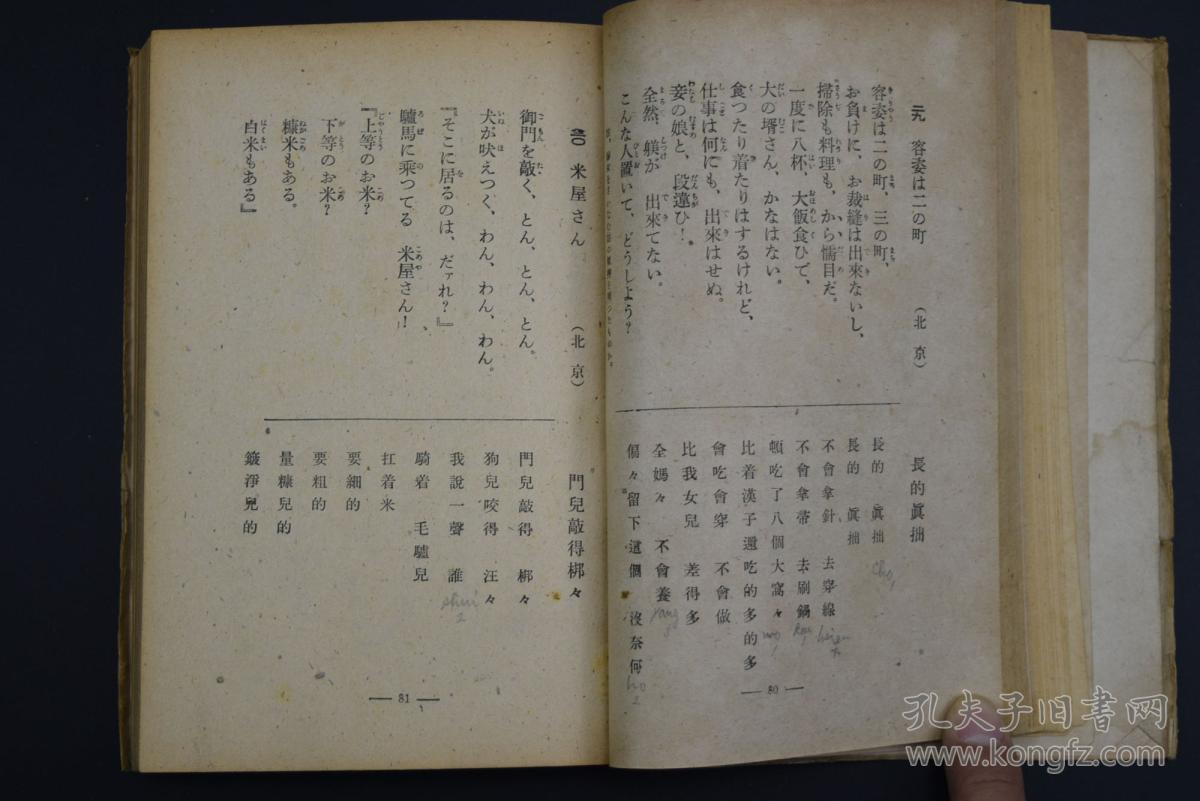 容姿は二の町
（北京）
容姿は二の町、三の町、
お負けに、お裁縫は出來ないし、
掃除も料理も、から懦目だ。
一度に八杯、大飯食ひで、
大の壻さん、かなはない。
食つたり着たりはするけれど、
仕事は何にも、出來はせぬ。
妾の娘と、段違ひ！
全然、躾が　出來てない。
こんな人置いて、どうしよう？
長的眞拙
長的　眞拙
長的　眞拙
不會拿針　去穿線
不會拿帚　去刷鍋
頓吃了八個大窩々
比着漢子還吃的多的多
會吃會穿　不會做
比我女兒　差得多
全媽々　不會養
偏々留下這個　沒奈何
— 80 —
米屋さん
（北京）
御門を敲く、とん、とん、とん。
犬が吠えつく、わん、わん、わん。
『そこに居るのは、だァれ？』
驢馬に乘つてる　米屋さん！
『上等のお米？
下等のお米？
糠米もある。
白米もある』
門兒敲得梆々
門兒敲得　梆々
狗兒咬得　汪々
我說一聲　誰
騎着　毛驢兒
扛着米
要細的
要粗的
量糠兒的
簸淨兒的
— 81 —
孔夫子旧书网
www.kongfz.com